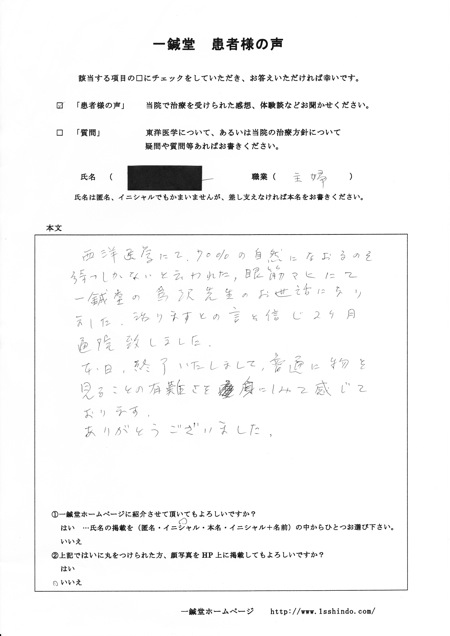 一鍼堂 患者様の声
該当する項目の□にチェックをしていただき、お答えいただければ幸いです。
☑ 「患者様の声」 当院で治療を受けられた感想、体験談などお聞かせください。
□ 「質問」 東洋医学について、あるいは当院の治療方針について
疑問や質問等あればお書きください。
氏名 ( ) 職業( 主婦 )
氏名は匿名、イニシャルでもかまいませんが、差し支えなければ本名をお書きください。
本文
西洋医学にて、90%の自然になおるのを
待つしかないと云われた、眼筋マヒにて
一鍼堂の 先生のお世話になり
ました。治りますとの言と信じ2ヶ月
通院致しました。
本日、終了いたしまして、普通に物を
見ることの有難さを 身にしみて感じて
おります。
ありがとうございました。
①一鍼堂ホームページに紹介させて頂いてもよろしいですか?
はい …氏名の掲載を(匿名・イニシャル・本名・イニシャル+名前)の中からひとつお選び下さい。
いいえ
②上記ではいに丸をつけられた方、顔写真を HP 上に掲載してもよろしいですか?
はい
いいえ
一鍼堂ホームページ http://www.1sshindo.com/